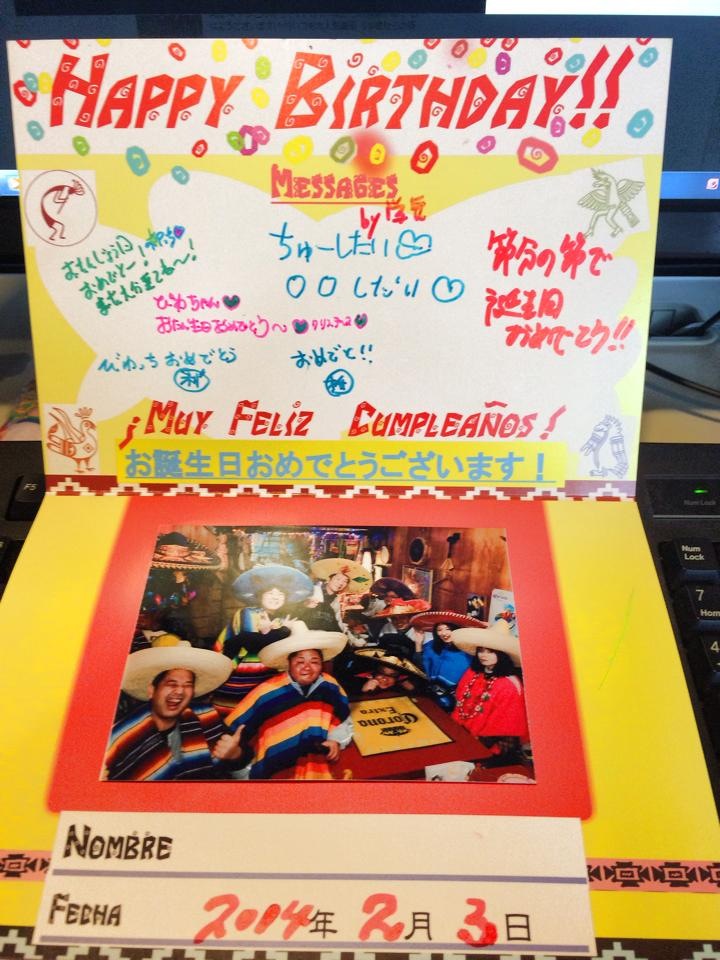 HAPPY BIRTHDAY!!
MESSAGES
by
おたんじょう日
おめでとー!
また大分来てね〜!
ちゅーしたい♡
〇〇したい♡
節分の節で
誕生日
おめでとう!!
びわちゃん♥
お誕生日おめでとう〜♥クリスチネ♥
びわっち おめでとう
おめでと!!
¡MUY FELIZ CUMPLEAÑOS!
お誕生日おめでとうございます!
F5
Num Lock
Num
Lock
7
Home
4
Corona
Extra
NOMBRE
FECHA 2014年 2月 3日